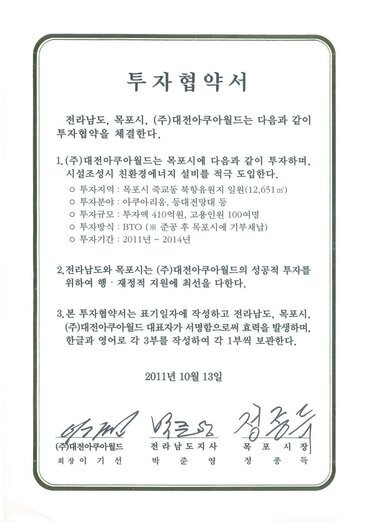 투자협약서
전라남도, 목포시, (주)대전아쿠아월드는 다음과 같이
투자협약을 체결한다.
1.(주)대전아쿠아월드는 목포시에 다음과 같이 투자하며,
시설조성시 친환경에너지 설비를 적극 도입한다.
○ 투자지역 : 목포시 죽교동 북항유원지 일원(12,651㎡)
○ 투자분야 : 아쿠아리움, 등대전망대 등
○ 투자규모 : 투자액 410억원, 고용인원 100여명
○ 투자방식 : BTO (※ 준공 후 목포시에 기부채납)
○ 투자기간 : 2011년 ~ 2014년
2.전라남도와 목포시는 (주)대전아쿠아월드의 성공적 투자를
위하여 행·재정적 지원에 최선을 다한다.
3.본 투자협약서는 표기일자에 작성하고 전라남도, 목포시,
(주)대전아쿠아월드 대표자가 서명함으로써 효력을 발생하며,
한글과 영어로 각 3부를 작성하여 각 1부씩 보관한다.
2011년 10월 13일
정종득
(주)대전아쿠아월드 전라남도지사 목포시장
회장 이기선 박준영 정종득